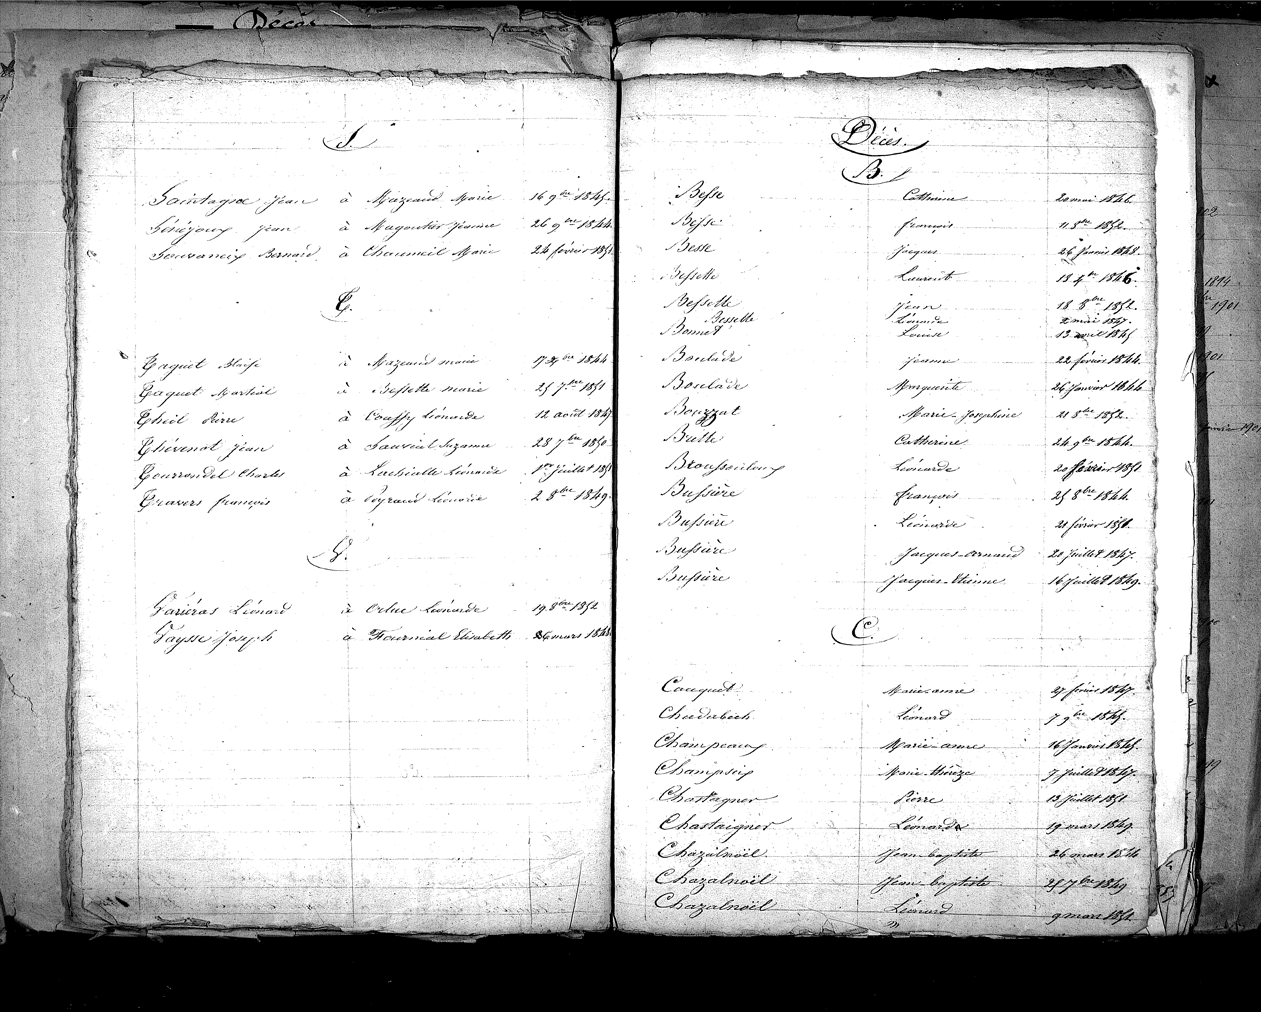 Décès
S.
Saintagne Jean à Mazeaud Marie 16 9bre 1845.
Sénéjoux Jean à Magontier Jeanne 26 9bre 1844.
Souvaneix Bernard à Chaumeil Marie 24 février 1851
T.
Taquet Blaise à Mazeaud marie 1844
Taquet Martial à Bessette marie 25 7bre 1851
Theil Pierre à Couffy Léonarde 12 août 1847
Thévenot Jean à Sauviat Suzanne 28 7bre 1850
Tourrondel Charles à Lachialle Léonarde 1er Juillet 1851
Travers françois à Peyraud Léonarde 2 8bre 1849.
V.
Variéras Léonard à Orluc Léonarde 19 8bre 1852
Vaysse Joseph à Fournial Elisabeth 26 mars 1848
Décès.
B.
Besse Catherine 20 mai 1846.
Besse françois 11 8bre 1852.
Besse Jacques 26 Janvier 1848.
Bessette Laurent 18 1846.
Bessette Jean 18 8bre 1852.
Bessette Léonarde 2 mai 1847.
Bonnet Louise 13 avril 1845
Boulade Jeanne 22 février 1844.
Boulade Marguerite 26 Janvier 1844
Bouzzat Marie-Josephine 21 8bre 1852.
Brette Catherine 24 9bre 1844.
Broussouloux Léonarde 20 février 1851
Bussière françois 25 8bre 1844.
Bussière Léonarde 21 février 1851.
Bussière Jacques-Arnaud 20 Juillet 1847.
Bussière Jacques-Etienne 16 Juillet 1849.
C.
Cauquet Marie-anne 27 février 1847.
Chadebech Léonard 7 9bre 1845.
Champeaux Marie-anne 16 Janvier 1845.
Champseix Marie-thérèze 7 Juillet 1847.
Chastagner Pierre 13 Juillet 1851
Chastaigner Léonarde 19 mars 1849.
Chazalnoël. Jean-baptiste 26 mars 1844
Chazalnoël Jean-baptiste 25 7bre 1849
Chazalnoël Léonard 9 mars 1852.